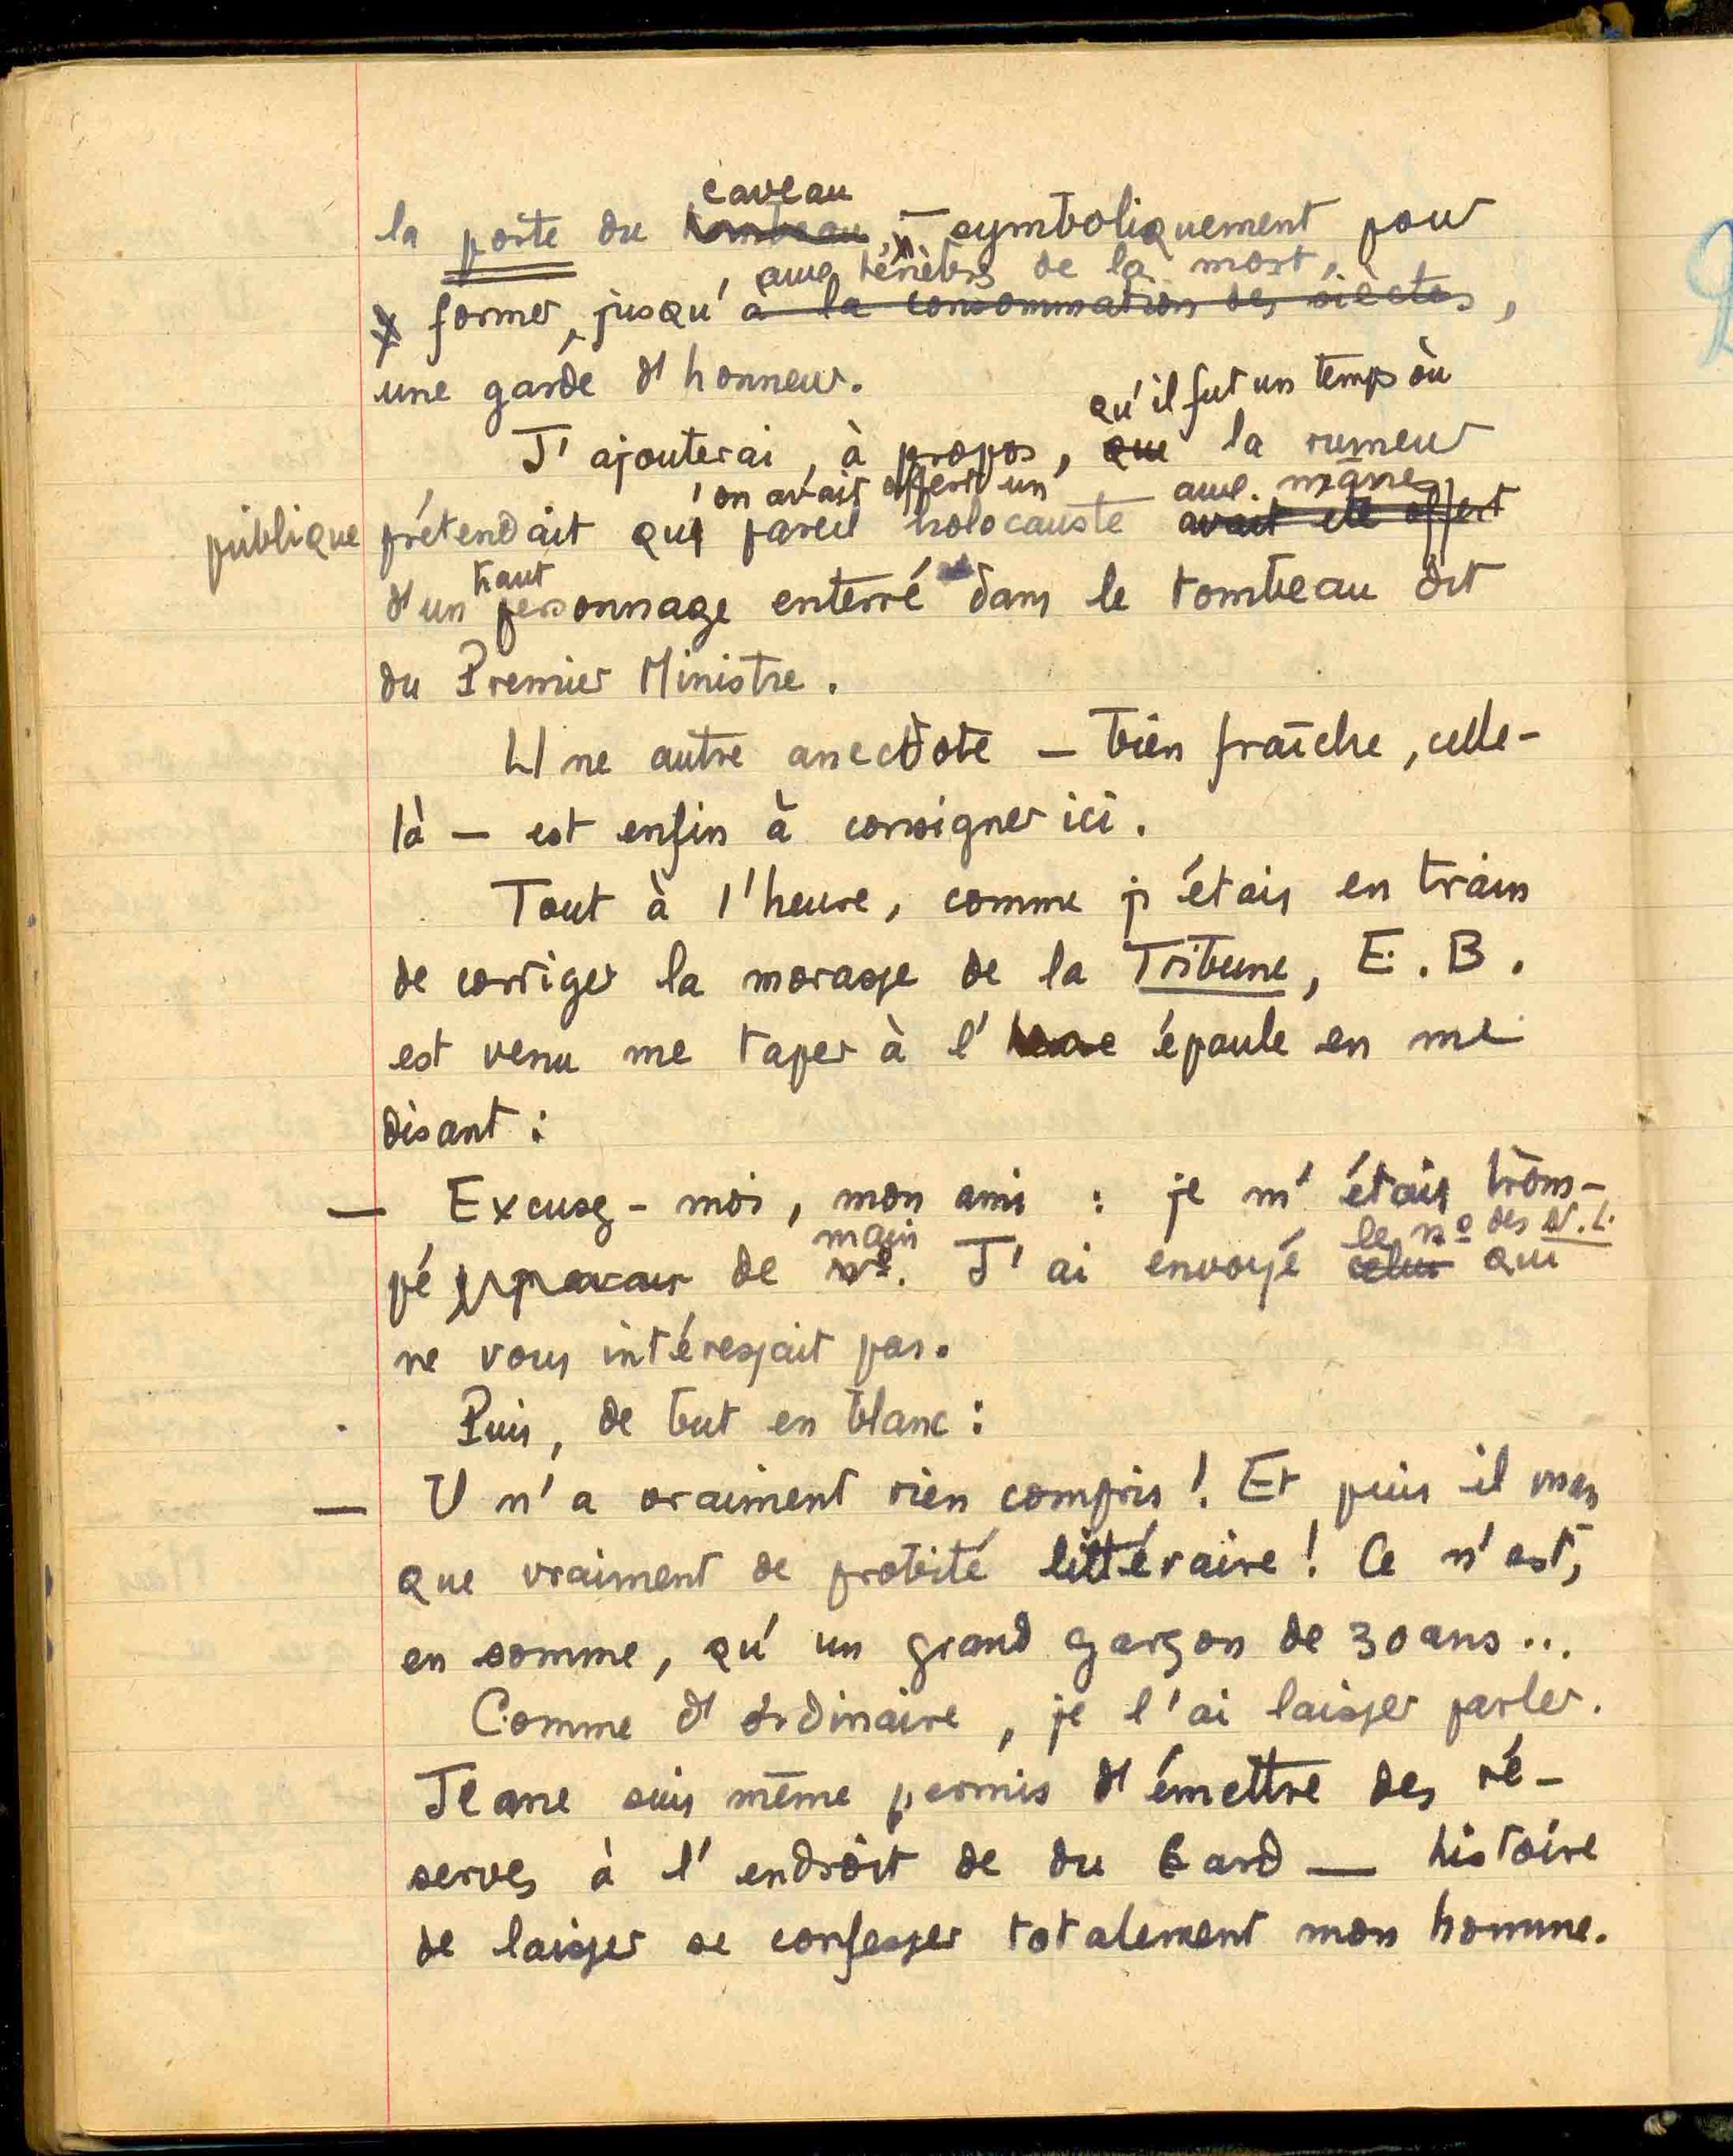 caveau
la porte du tombeau, — symboliquement pour
, aux ténèbres de la mort,
former, jusqu'à la consommation des siècles,
une garde d'honneur.
qu'il fut un temps où
J'ajouterai, à propos, que la rumeur
'on avait offert un aux mânes
publique prétendait qu' pareil holocauste avait été offert
haut
d'un personnage enterré dans le tombeau dit
du Premier Ministre.
Une autre anecdote — bien fraîche, celle-
là — est enfin à consigner ici.
Tout à l'heure, comme j'étais en train
de corriger la morasse de la Tribune, E. B.
est venu me taper à l' épaule en me
disant :
— Excusez-moi, mon ami : je m'étais trom-
main le nº des N.L.
pé de nº. J'ai envoyé celui qui
ne vous intéressait pas.
Puis, de but en blanc :
— Il n'a vraiment rien compris ! Et puis il man
que vraiment de probité littéraire ! Ce n'est,
en somme, qu'un grand garçon de 30 ans...
Comme d'ordinaire, je l'ai laisser parler.
Je me suis même permis d'émettre des ré-
serves à l'endroit de du Bard — histoire
de laisser se confesser totalement mon homme.